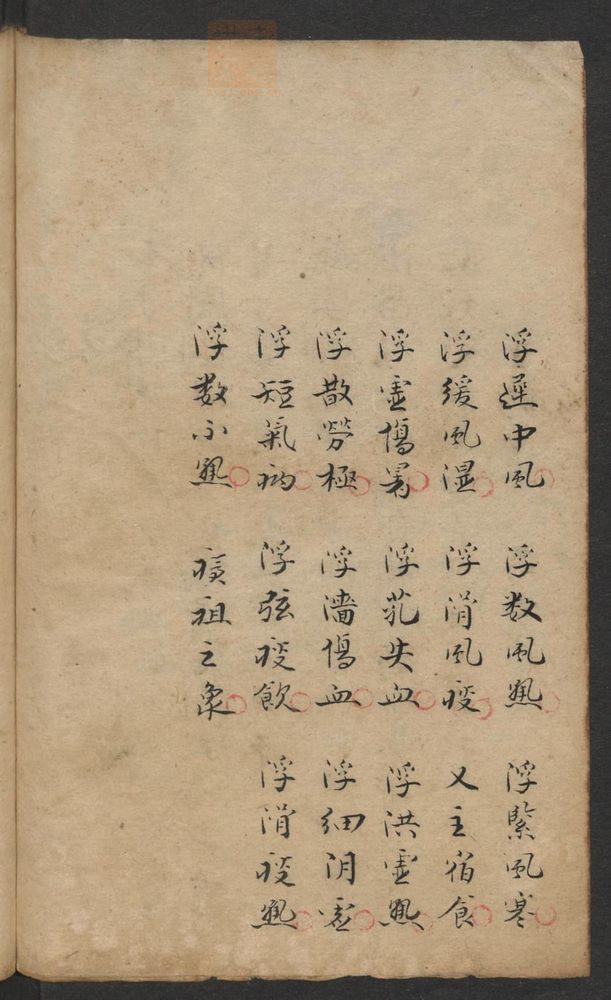 浮遲中風 浮数風熱 浮緊風寒
浮緩風湿 浮滑風痰 又主宿食
浮虚傷暑 浮芤失血 浮洪虚熱
浮散勞極 浮濇傷血 浮细阴虚
浮短氣病 浮弦痰飲 浮滑痰熱
浮数小熱 之象